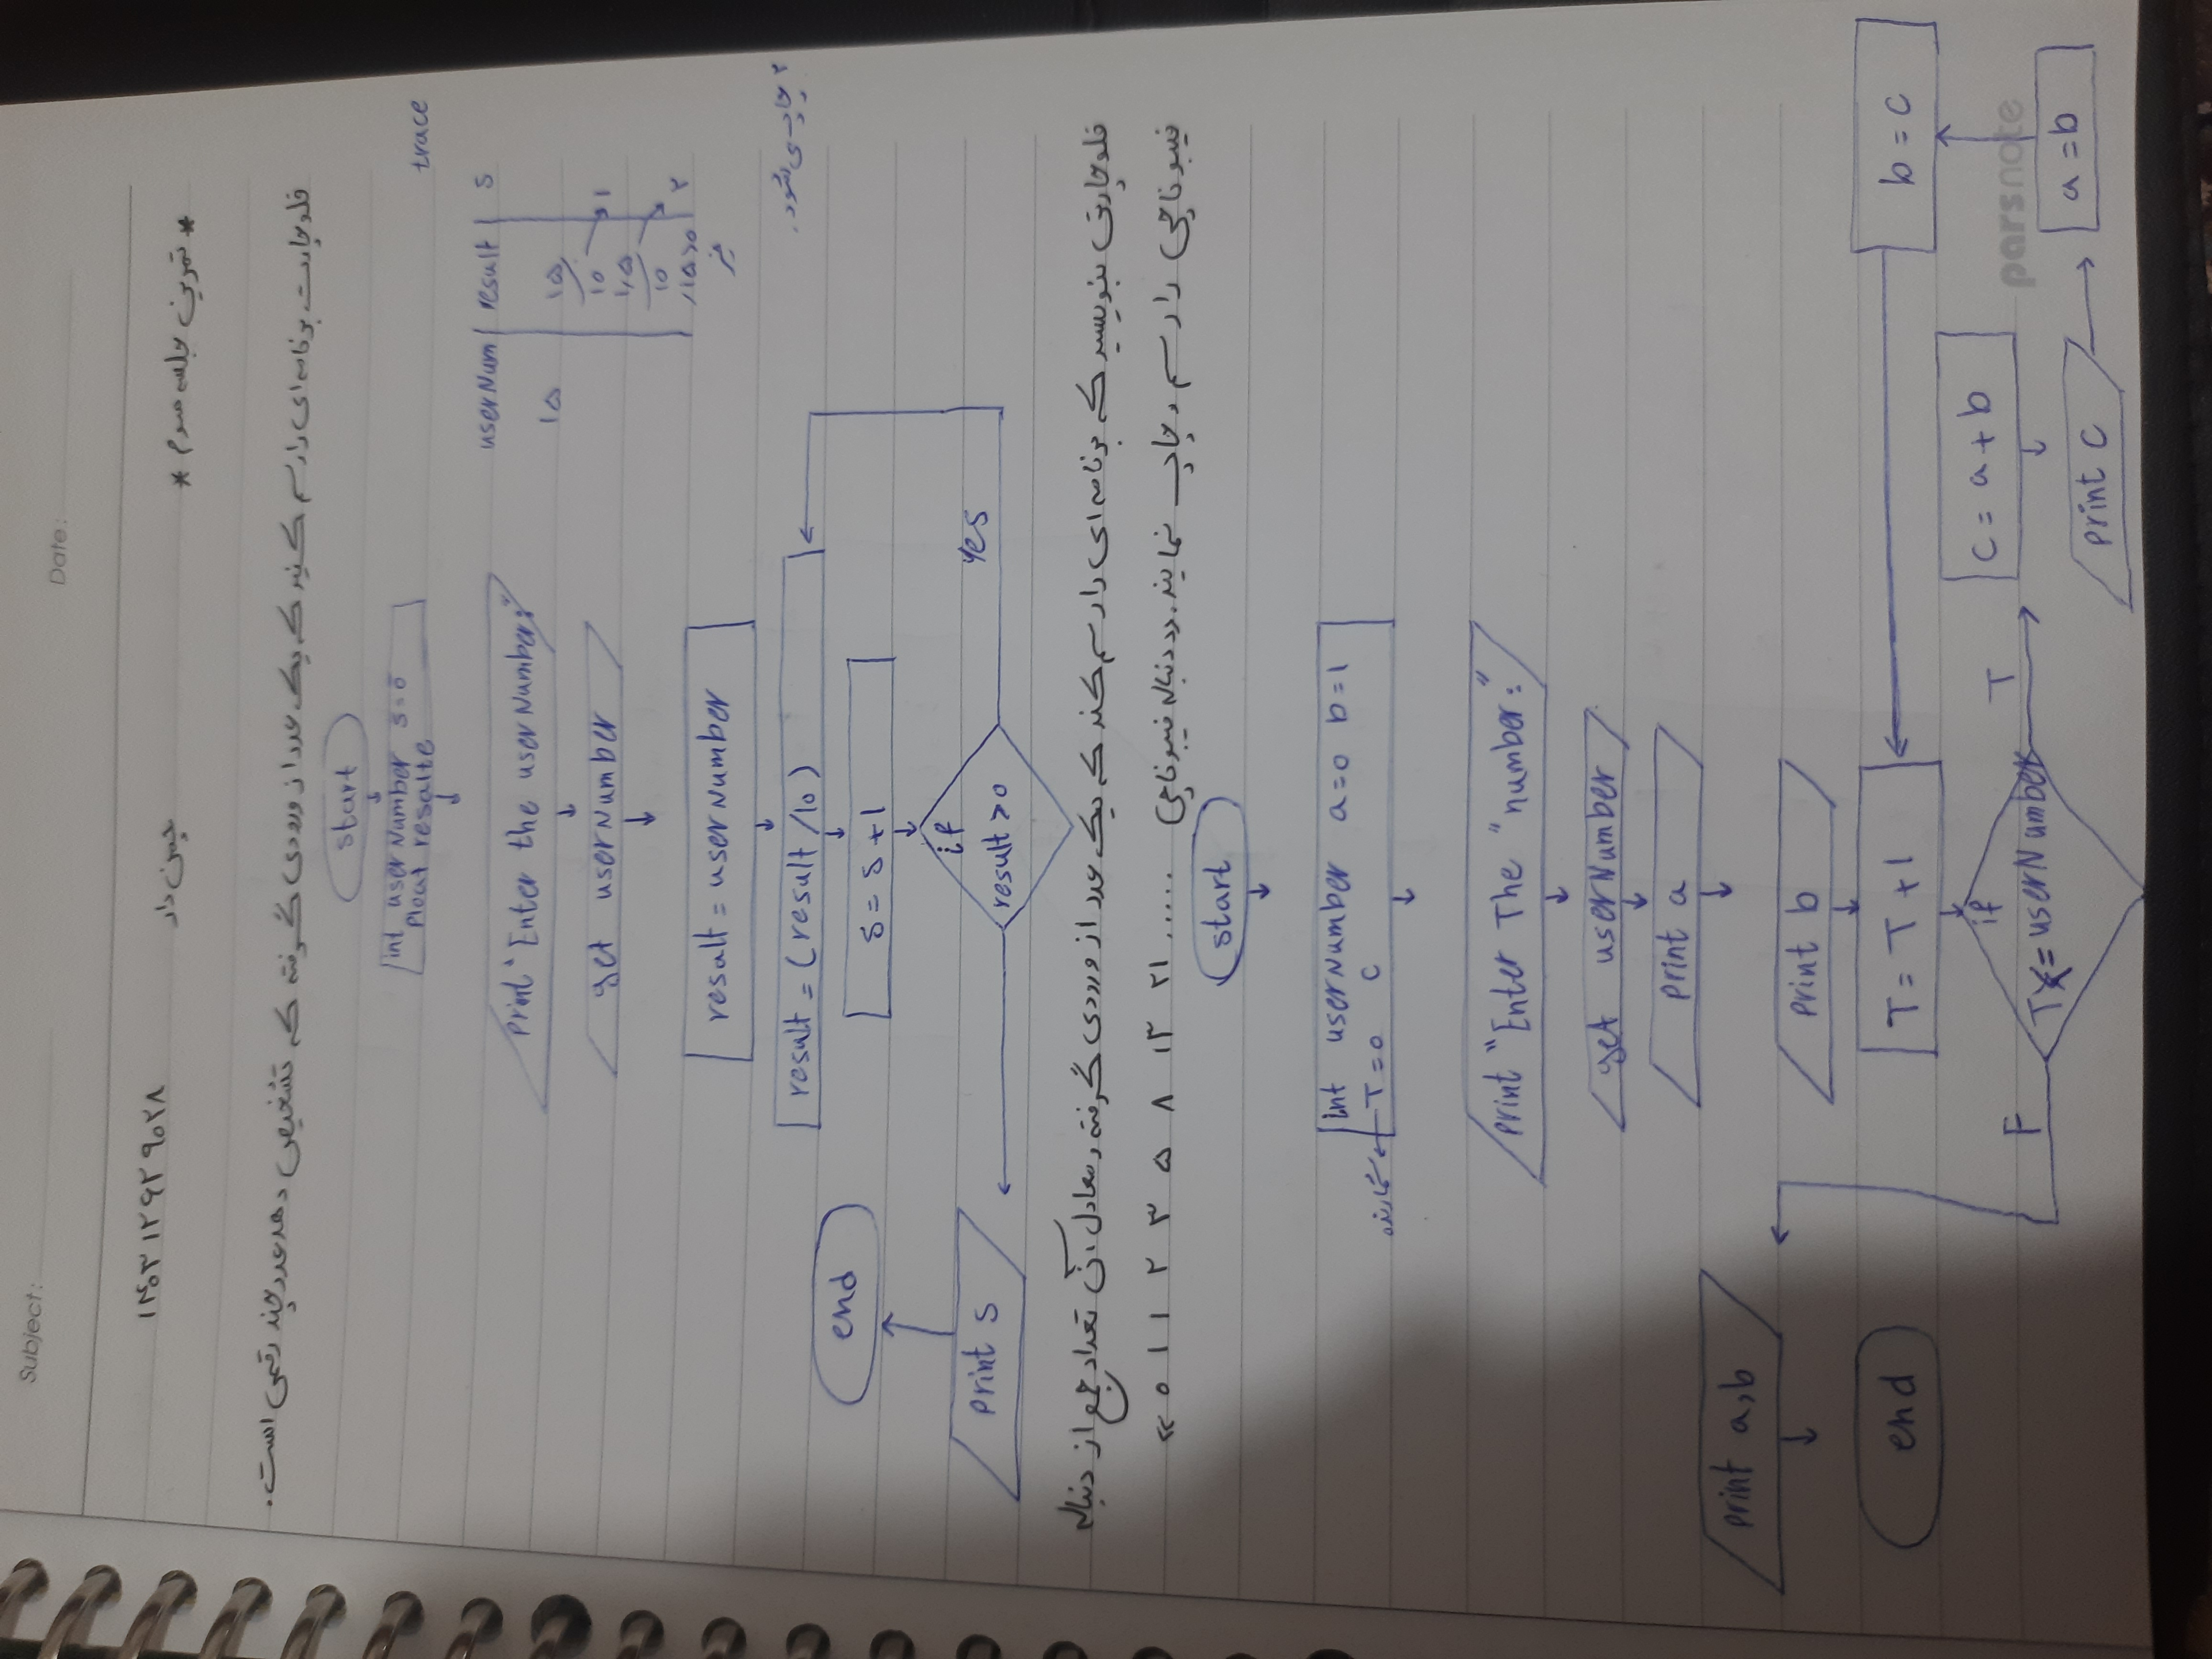 Subject:
Date:
* تمرین جلسه سوم *
چمن دار
۱۴۰۳۱۲۶۲۹۰۲۸
فلوچارت برنامه ای را رسم کنید که یک عدد از ورودی گرفته که تشخیص دهد عدد چند رقمی است.
start
int userNumber s=0
Float resalte
print "Enter the userNumber:"
get userNumber
result = userNumber
result = (result /10)
s = s +1
if
result >0
Yes
print s
end
trace
userNum | result | s
۱۵
۱۵
10
۱
۱,۵
10
۲
,۱۵>۰
خیر
۲ چاپ می شود.
فلوچارتی بنویسید که برنامه ای را رسم کند که یک عدد از ورودی گرفته و معادل آن تعداد جمع از دنباله
فیبوناچی را رسم و چاپ نمایند. دنباله فیبوناچی ..... ۲۱ ۱۳ ۸ ۵ ۳ ۲ ۱ ۱ ۰ »
start
int userNumber a=0 b=1
T=0 C
شمارنده
print "Enter The "number:"
get userNumber
print a
print b
T= T+1
if
T = userNumber
T
C= a+b
print C
a =b
b = c
F
print a,b
end
parsnote